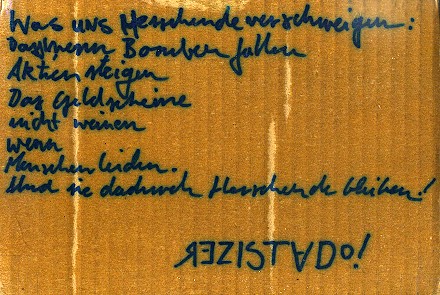 Was uns Herrschende verschweigen:
Dass wenn Bomben fallen
Aktien steigen
Das Geldscheine
nicht weinen
wenn
Menschen leiden.
Und sie dadurch Herrschende bleiben!
ЯEZIƧTADO!